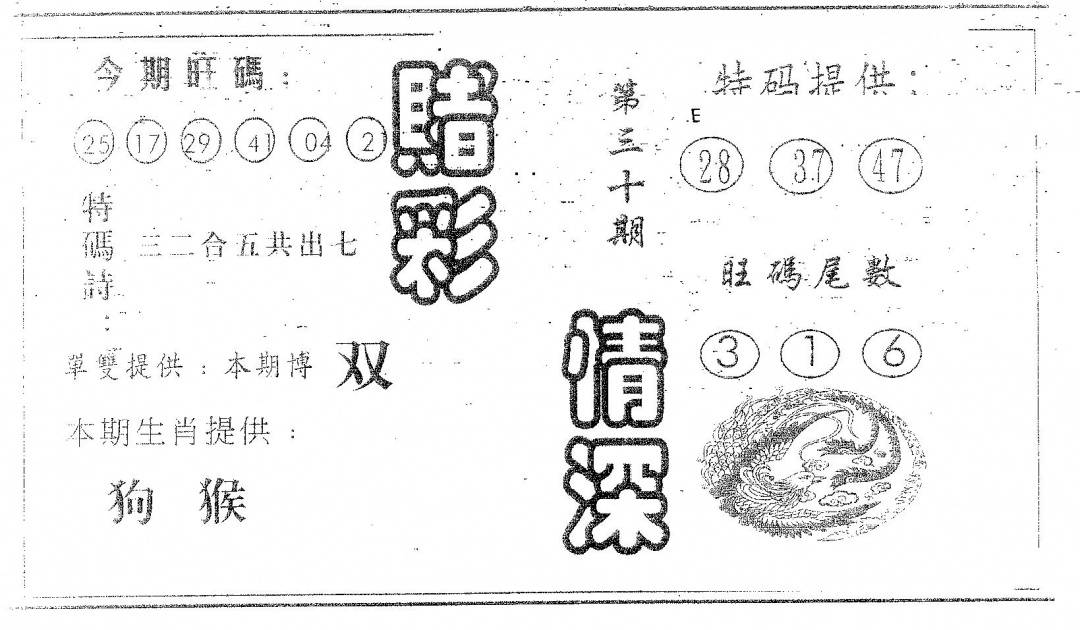 今期旺碼：
25 17 29 41 04 2
特碼詩：
三二合五共出七
單雙提供：本期博 双
本期生肖提供：
狗 猴
賭彩
情深
第三十期
特码提供：
E
28 37 47
旺碼尾數
3 1 6